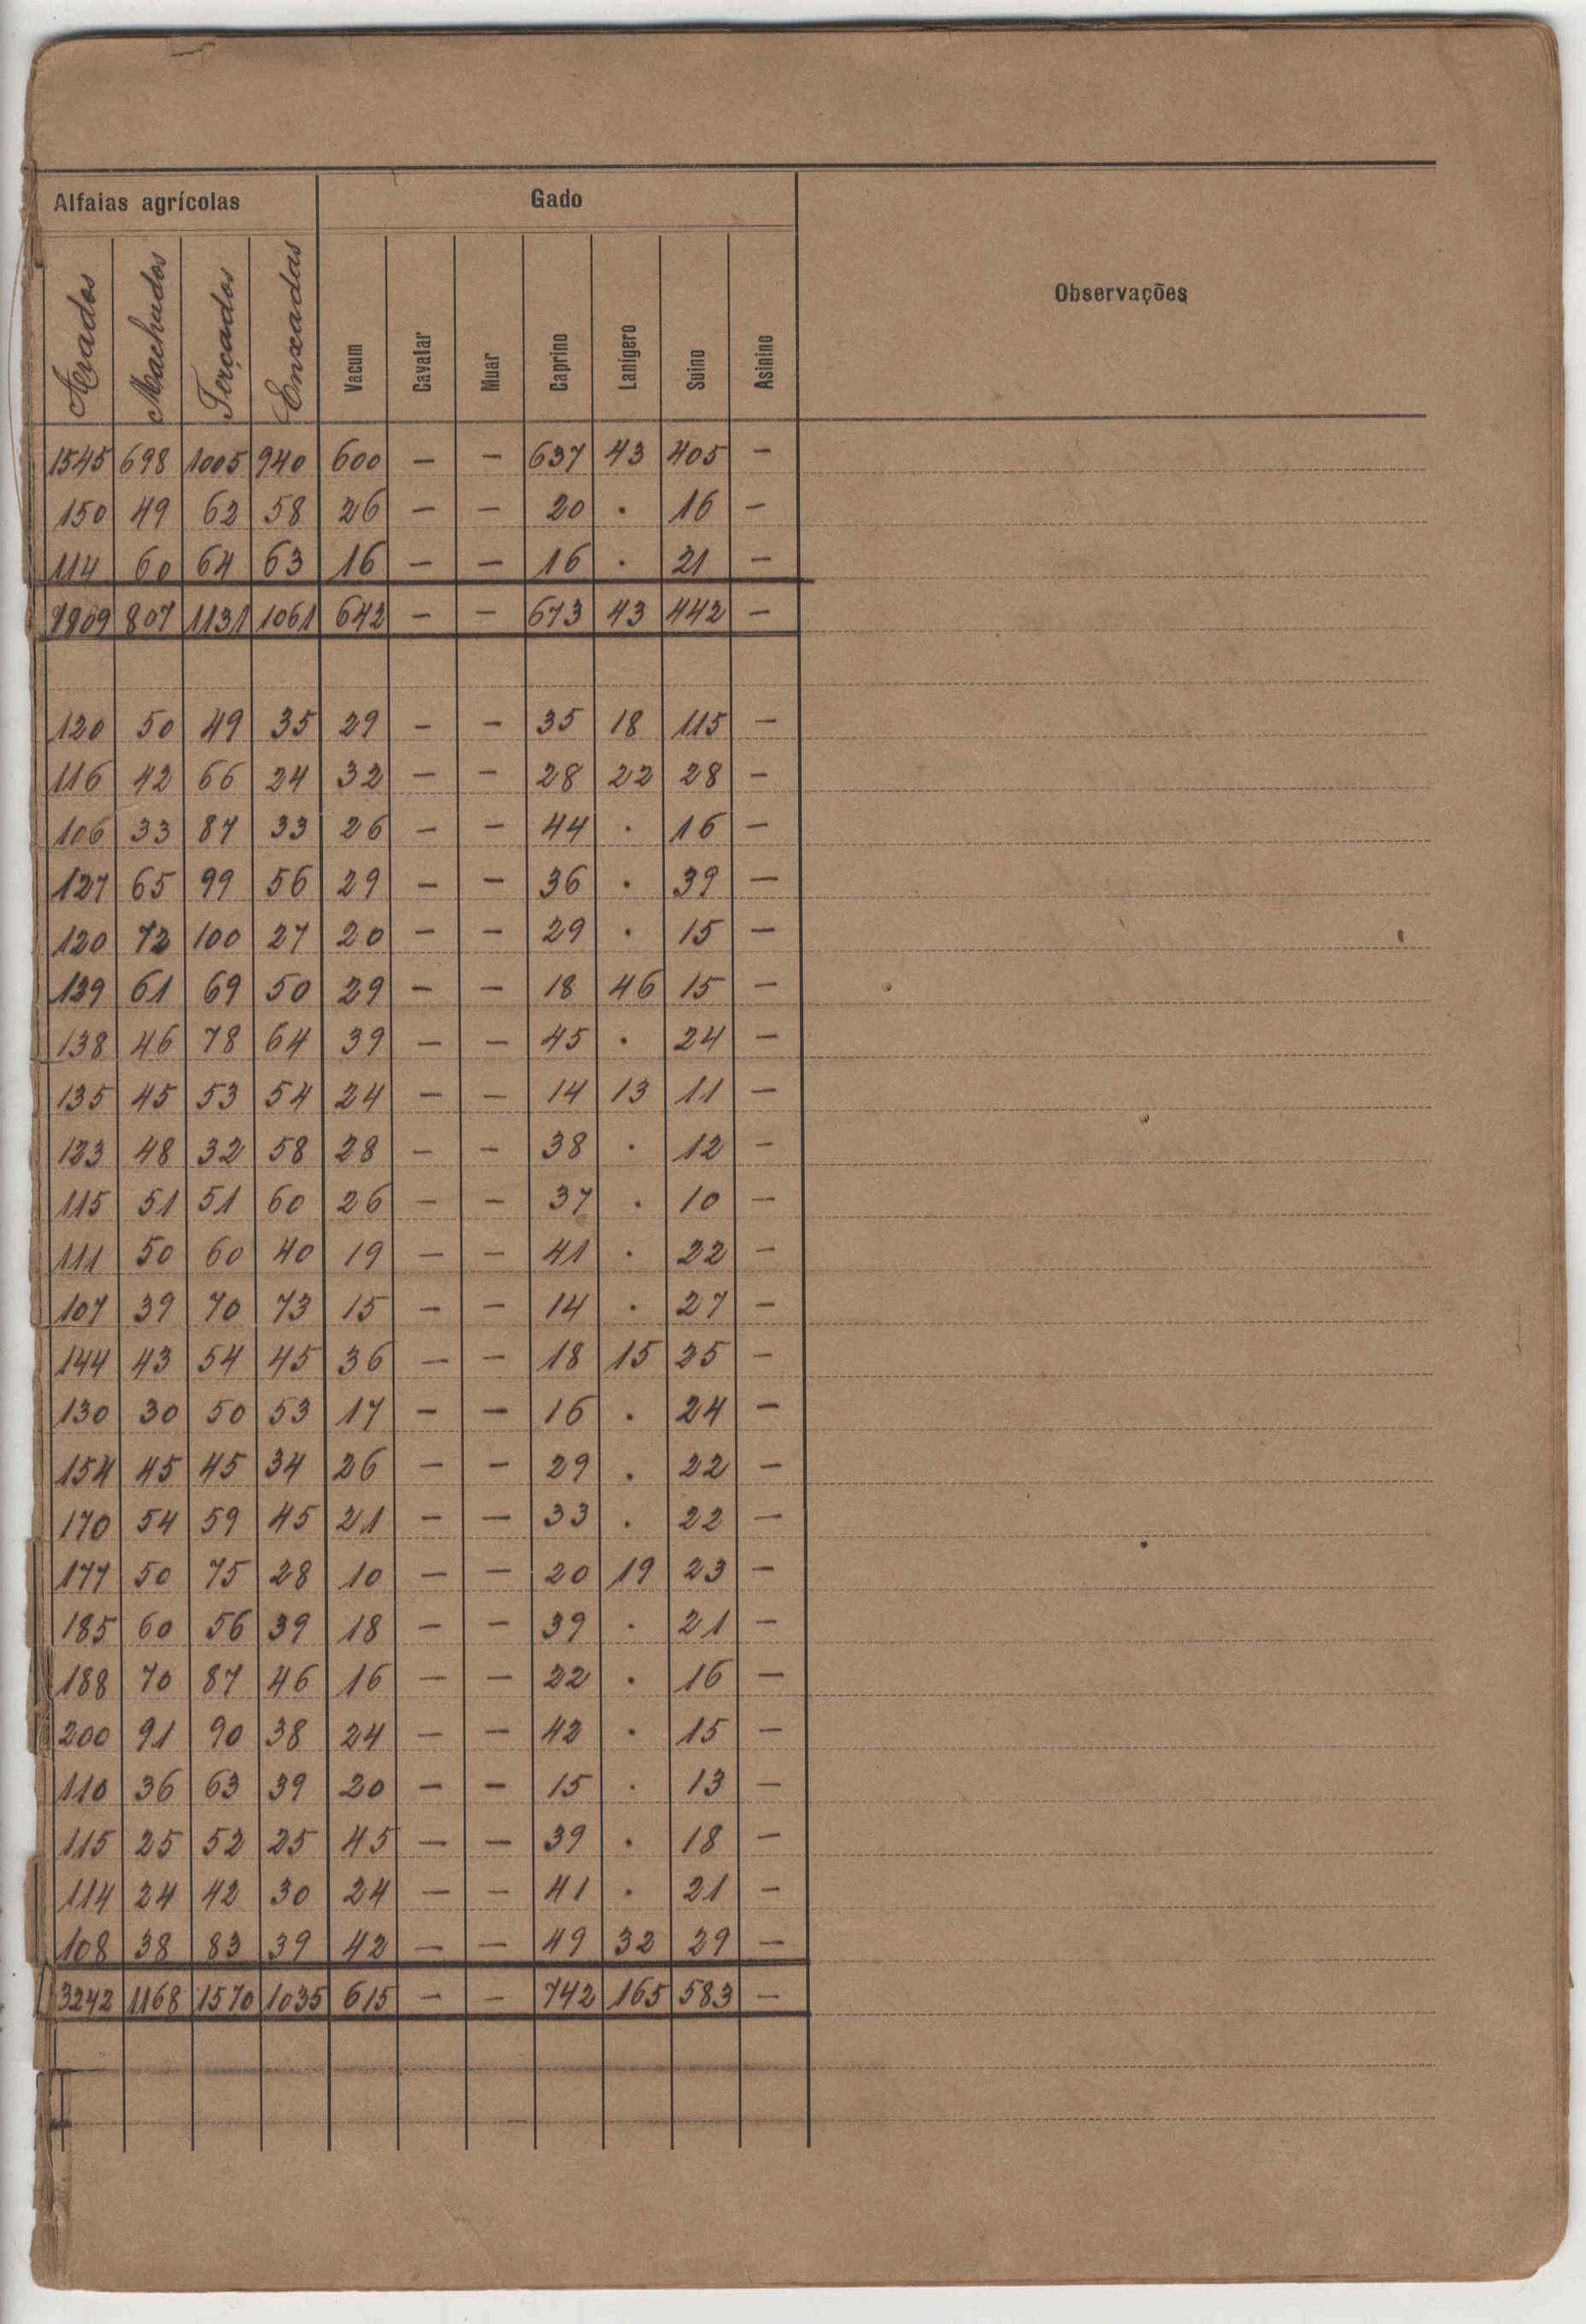 Alfaias agrícolas Gado Observações
Arados Machados Terçados Enxadas Vacum Cavalar Muar Caprino Lanígero Suíno Asinino
1545 698 1005 940 600 — — 637 43 405 —
150 49 62 58 26 — — 20 . 16 —
114 60 64 63 16 — — 16 . 21 —
1809 807 1131 1061 642 — — 673 43 442 —
120 50 49 35 29 — — 35 18 115 —
116 42 66 24 32 — — 28 22 28 —
106 33 87 33 26 — — 44 . 16 —
127 65 99 56 29 — — 36 . 39 —
120 72 100 27 20 — — 29 . 15 —
129 61 69 50 29 — — 18 46 15 —
138 46 78 64 39 — — 45 . 24 —
135 45 53 54 24 — — 14 13 11 —
123 48 32 58 28 — — 38 . 12 —
115 51 51 60 26 — — 37 . 10 —
111 50 60 40 19 — — 41 . 22 —
107 39 70 73 15 — — 14 . 27 —
144 43 54 45 36 — — 18 15 25 —
130 30 50 53 17 — — 16 . 24 —
154 45 45 34 26 — — 29 . 22 —
170 54 59 45 21 — — 33 . 22 —
177 50 75 28 10 — — 20 19 23 —
185 60 56 39 18 — — 39 . 21 —
188 70 87 46 16 — — 22 . 16 —
200 91 90 38 24 — — 42 . 15 —
110 36 63 39 20 — — 15 . 13 —
115 25 52 25 45 — — 39 . 18 —
114 24 42 30 24 — — 41 . 21 —
108 38 83 39 42 — — 49 32 29 —
3242 1168 1570 1035 615 — — 742 165 583 —